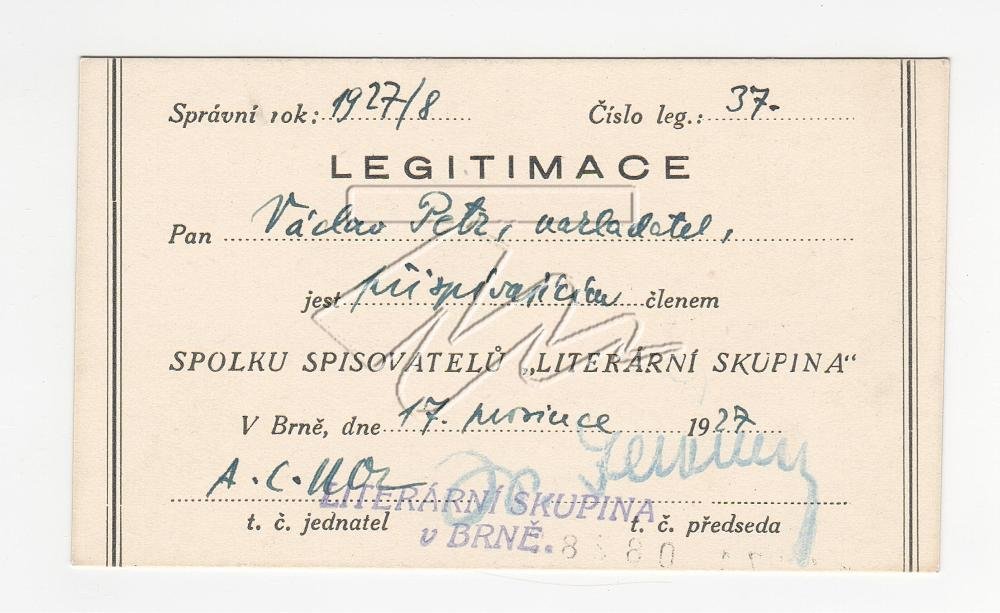 Správní rok: 1927/8 Číslo leg.: 37.
LEGITIMACE
Pan Václav Petr, nakladatel,
jest přispívajícím členem
SPOLKU SPISOVATELŮ „LITERÁRNÍ SKUPINA“
V Brně, dne 17. prosince 1927
A. C. Nor
LITERÁRNÍ SKUPINA
t. č. jednatel t. č. předseda
v BRNĚ.